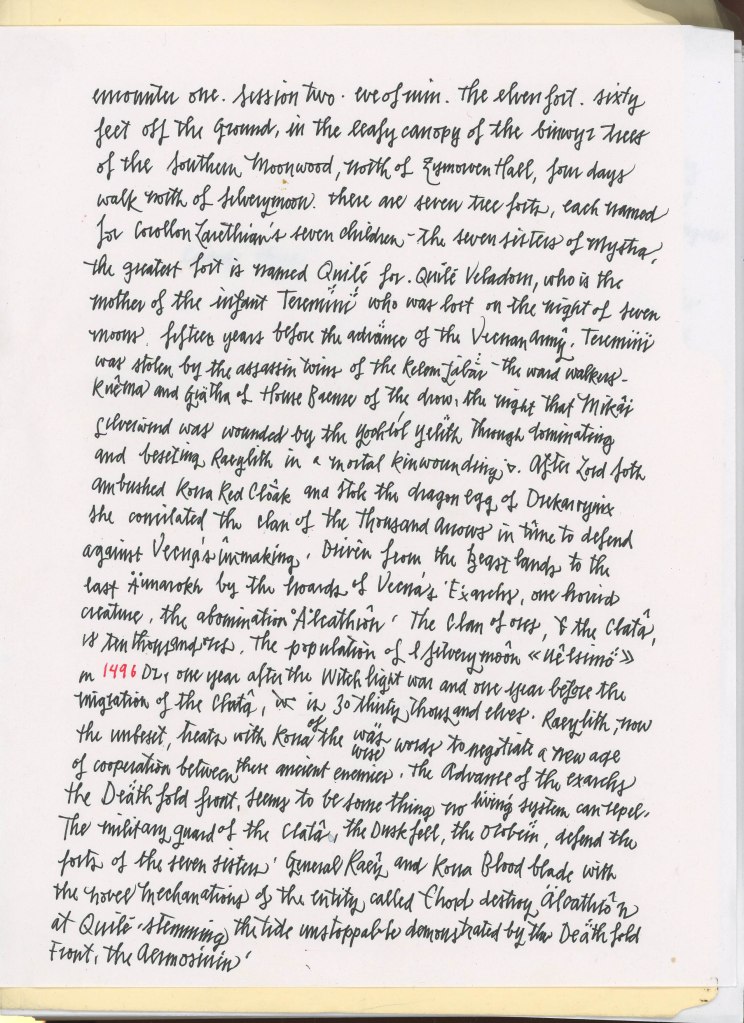 encounter one. Session two. eve of min. The elven fort. sixty
feet off the Ground, in the leafy canopy of the binwyr trees
of the Southern Moonwood, north of Zymorven Hall, four days
walk north of Silverymoon. there are seven tree forts, each named
for Corollon Larethian's seven children - the seven sisters of mystra,
the greatest fort is named Quilé for. Quilé Veladorn, who is the
mother of the infant who was lost on the night of seven
moons. fifteen years before the advance of the Vecnan Army.
was stolen by the assassin twins of the - the ward walkers -
Kuêma and Gjätha of House Baenre of the drow, the night that Mikâi
Silverwind was wounded by the yochlól Yelith through dominating
and besetting Raeylith in a mortal kinwounding. After Lord Soth
ambushed Korra Red Clôak and stole the dragon egg of
she the clan of the Thousand Arrows in time to defend
against Vecna's ûnmaking. Driven from the Beast lands to the
east Annarokh by the hoards of Vecna's Exarchs, one horrid
creature, the abomination The Clan of orcs, the Clatâ,
is ten thousand orcs. The population of Silverymoôn
in 1496 Dr, one year after the Witch light war and one year before the
migration of the Clatâ, is 30 thirty thousand elves. Raeylith, now
the unbesit, treats with Korra of the wäs
wise words to negotiate a new age
of cooperation between these ancient enemies. The Advance of the exarchs
the Deäthfold front, seems to be something no living system can repel.
The military guard of the Clatâ, the Duskfell, the defend the
forts of the seven sisters. General Raeŷ and Korra Blood blade with
the novel Mechanations of the entity called Chord destroy
at Quilé - stemming the tide unstoppable demonstrated by the Deäthfold
Front, the